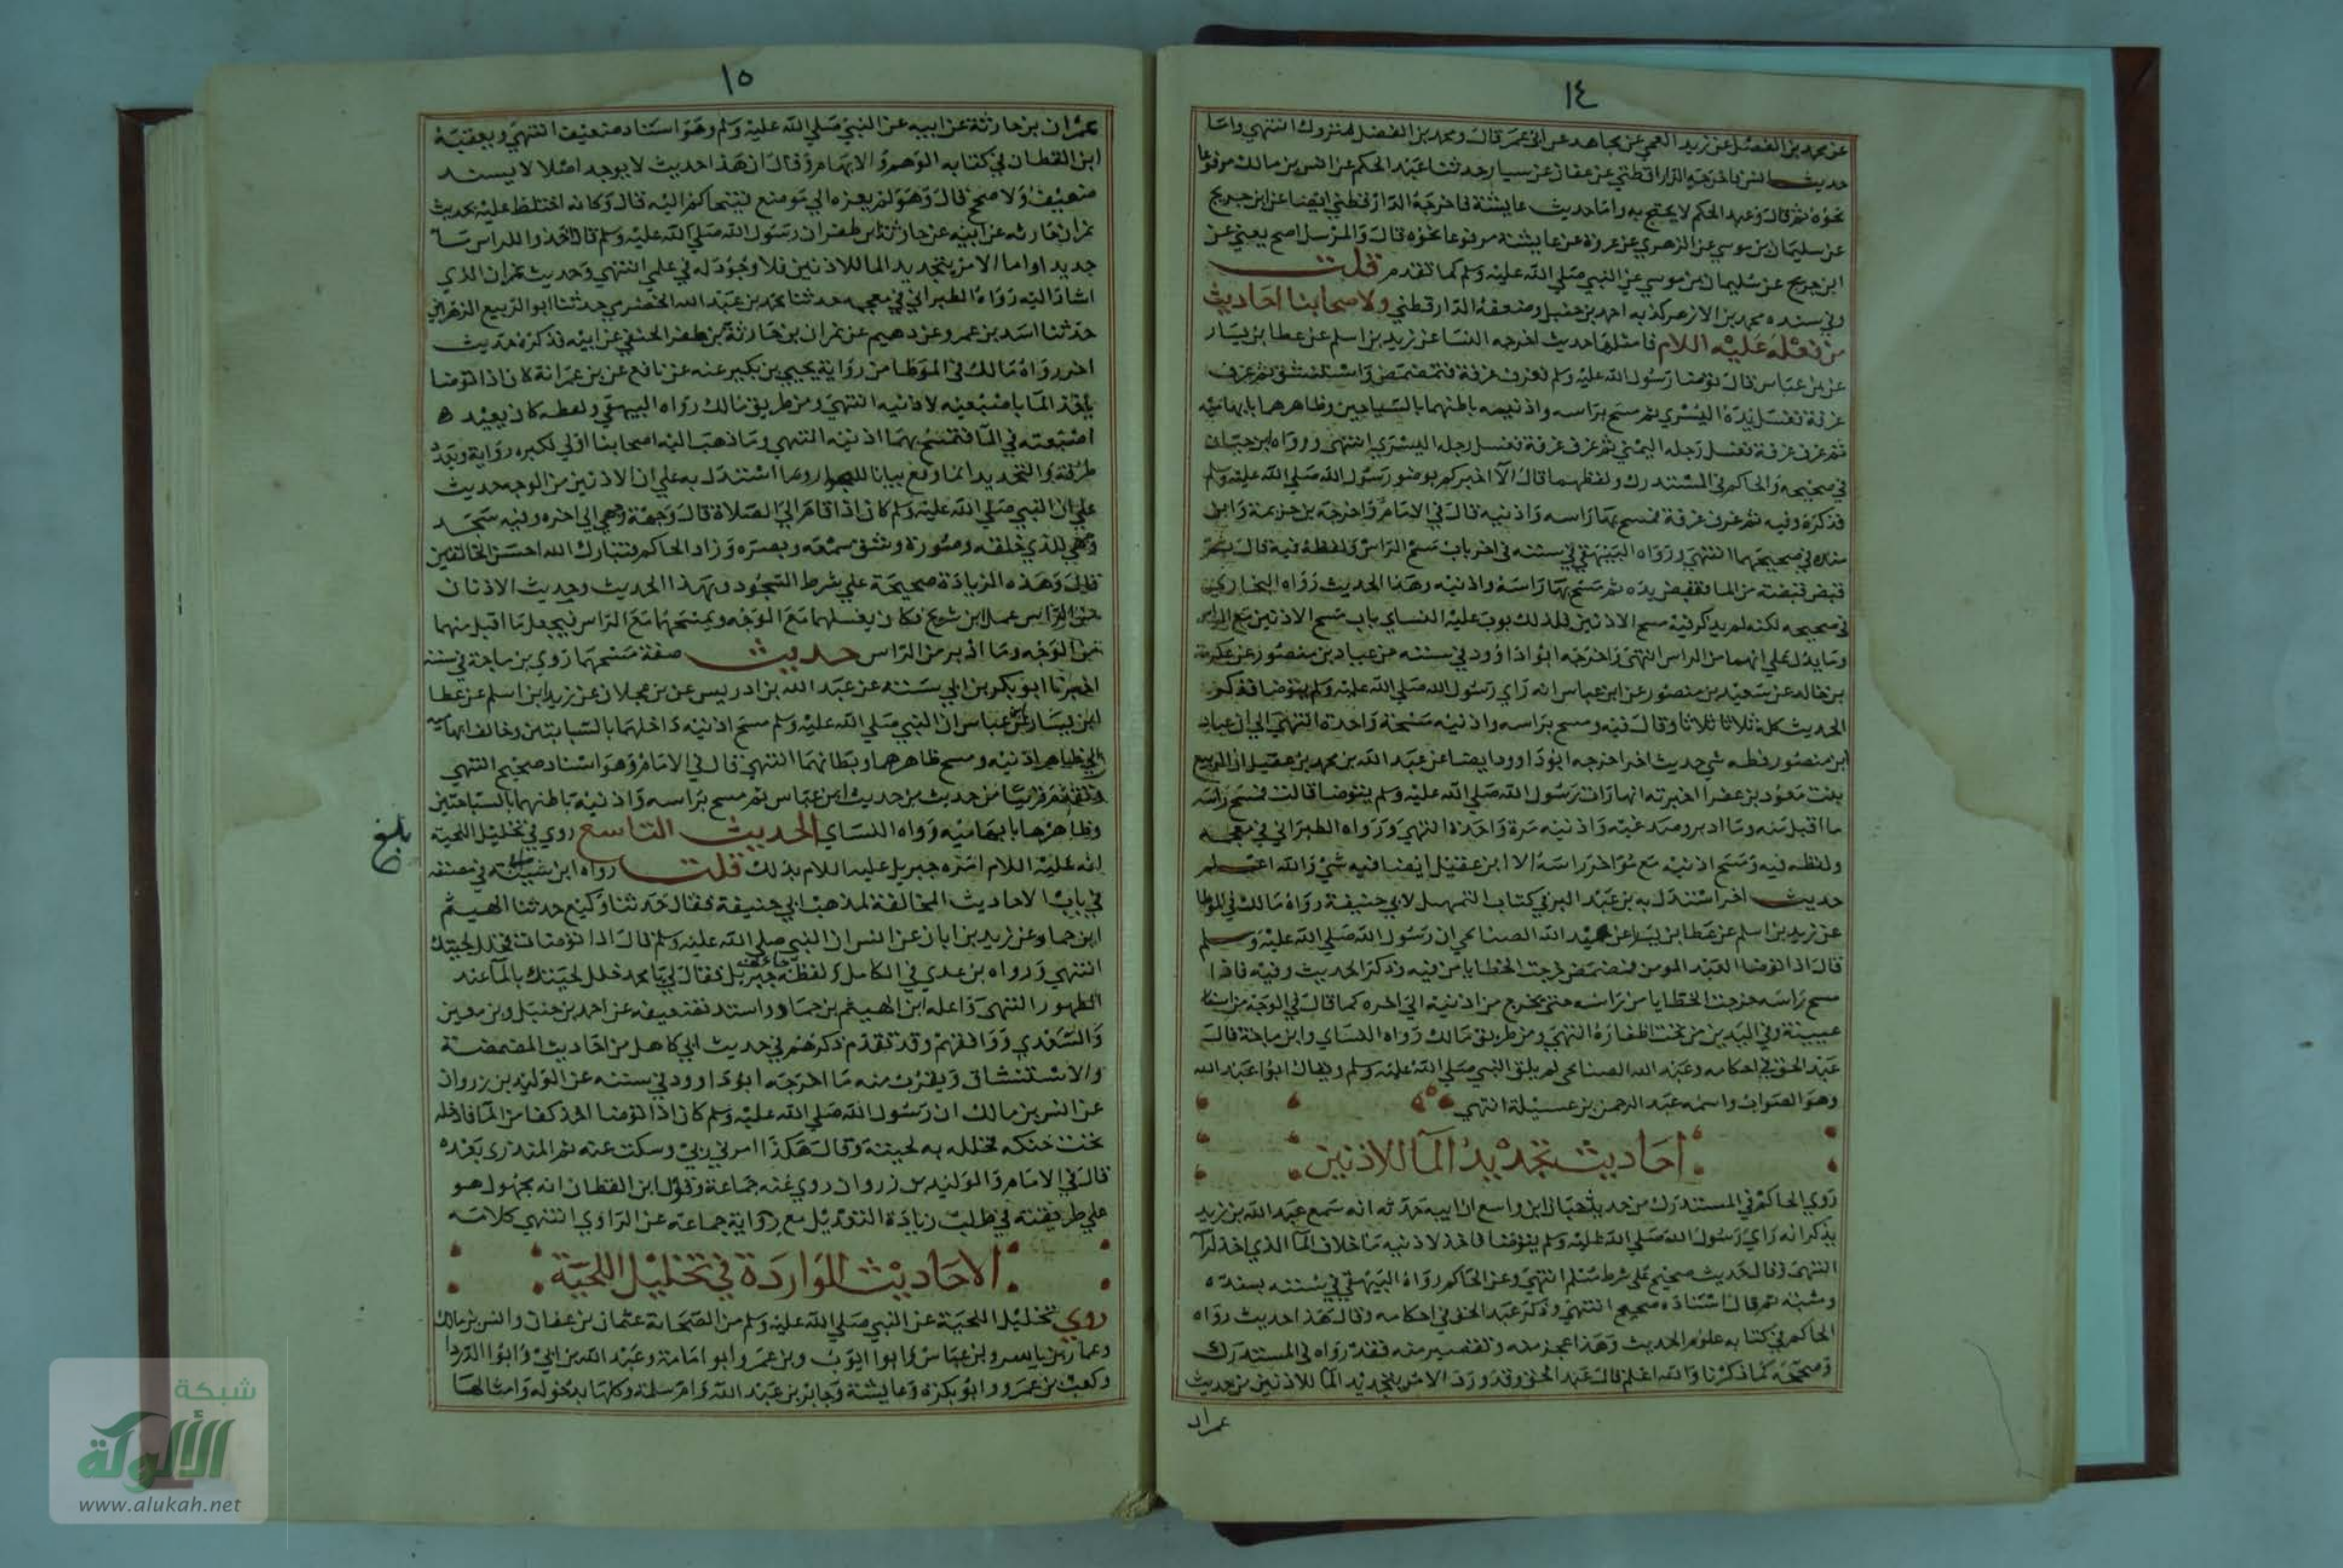 ١٤
عن محمد بن الفضل عن زيد العمي عن مجاهد عن ابن عمر قال ومحمد بن الفضل متروك انتهي واما
حديث انس فاخرجه الدارقطني عن عفان عن سيار حدثنا عبد الحكم عن انس بن مالك مرفوعا
نحوه ثم قال وعبد الحكم لا يحتج به واما حديث عايشة فاخرجه الدارقطني ايضا عن ابن جريج
عن سليمان بن موسي عن الزهري عن عروة عن عايشة مرفوعا نحوه قال والمرسل اصح يعني عن
ابن جريج عن سليمان بن موسي عن النبي صلي الله عليه وسلم كما تقدم قلت
وفي سنده محمد بن الازهر كذبه احمد بن حنبل وضعفه الدارقطني ولاصحابنا احاديث
من فعله عليه اللام فامثلها حديث اخرجه النسا عن زيد بن اسلم عن عطا بن يسار
عن بن عباس قال توضا رسول الله عليه وسلم فغرف غرفة فتمضمض واستنشق ثم غرف
غرفة فغسل يده اليسري ثم مسح براسه واذنيه باطنهما بالسباحين وظاهرهما بابهاميه
ثم غرف غرفة فغسل رجله اليمني ثم غرف غرفة فغسل رجله اليسري انتهى ورواه ابن حبان
في صحيحه والحاكم في المستدرك ولفظهما قال الا اخبركم بوضو رسول الله صلي الله عليه وسلم
فذكره وفيه ثم غرف غرفة فمسح بها راسه واذنيه قال في الامام واخرجه بن خزيمة وابن
منده في صحيحهما انتهي ورواه البيهقي في سننه في اخر باب مسح الراس ولفظه فيه قال ثم
قبض قبضته من الما فنفض يده ثم مسح بها راسه واذنيه وهذا الحديث رواه البخاري
في صحيحه لكنه لم يذكر فيه مسح الاذنين فلذلك بوب عليه النساي باب مسح الاذنين مع الراس
وما يدل علي انهما من الراس انتهى واخرجه ابو اذاوود في سننه من عباد بن منصور عن عكرمة
بن خالد عن سعيد بن منصور عن ابن عباس انه راي رسول الله صلي الله عليه وسلم يتوضا فذكر
الحديث كله ثلاثا ثلاثا وقال فيه ومسح براسه واذنيه مسحة واحدة انتهى الي ان عباد
ابن منصور فطه شي حديث اخر اخرجه ابو داوود ايضا عن عبد الله بن محمد بن عقيل ان الربيع
بنت معود بن عفرا اخبرته انها رات رسول الله صلي الله عليه وسلم يتوضا قالت فمسح راسه
ما اقبل منه وما ادبر وصدغيه واذنيه مرة واحدة انتهي ورواه الطبراني في معجمه
ولفظه فيه ومسح اذنيه مع مؤاخر راسه الا ابن عقيل ايضا فيه شي والله اعلم
حديث اخر استدل به بن عبد البر في كتاب التمهيد لابي حنيفة رواه مالك في الموطا
عن زيد بن اسلم عن عطا بن يسار عن عبد الله الصنابحي ان رسول الله صلي الله عليه وسلم
قال اذا توضا العبد المومن فمضمض خرجت الخطايا من فيه وذكر الحديث وفيه فاذا
مسح راسه خرجت الخطايا من راسه حتي تخرج من اذنيه الي اخره كما قال في الوجه من اشفار
عيينة وفي اليدين من تحت اظفاره انتهي ومن طريق مالك رواه النساي وابن ماجة قال
عبد الحق في احكامه وعبد الله الصنابحي لم يلق النبي صلي الله عليه وسلم ويقال ابو اعبد الله
وهو الصواب واسمه عبد الرحمن بن عسيلة انتهي
احاديث تجديد المآ للاذنين
روي الحاكم في المستدرك من حديث حبان ابن واسع ان ابيه حدثه انه سمع عبد الله بن زيد
يذكر انه راي رسول الله صلي الله عليه وسلم يتوضا فاخذ لاذنيه ما خلاف المآ الذي اخذ لرا
انتهى وقال حديث صحيح على شرط مسلم انتهي وعن الحاكم رواه البيهقي في سننه بسنده
ومتنه ثم قال اسناده صحيح انتهي وذكر عبد الحق في احكامه وقال هذا حديث رواه
الحاكم في كتابه علوم الحديث وهذا عجز منه وتقصير منه فقد رواه في المستدرك
وصححه كما ذكرنا والله اعلم قال عبد الحق وقد ورد الامر بتجديد المآ للاذنين من حديث
عمران
١٥
عمران بن حارثة عن ابيه عن النبي صلي الله عليه وسلم وهو اسناد ضعيف انتهي وبعقبه
ابن القطان في كتابه الوهم والابهام وقال ان هذا حديث لا يوجد اصلا لا بسند
ضعيف ولا صحيح قال وهو لم يعزه الي موضع فيتحاكم اليه قال وكانه اختلط عليه بحديث
نمران بن حارثه عن ابيه عن حارثة بن ظفر ان رسول الله صلي الله عليه وسلم قال خذوا للراس ما
جديدا واما الامر بتجديد الما للاذنين فلا وجود له في علمي انتهي وحديث نمران الذي
اشار اليه رواه الطبراني في معجمه حدثنا محمد بن عبد الله الحضرمي حدثنا ابو الربيع الزهراني
حدثنا اسد بن عمرو عن دهيم عن نمران بن حارثة بن ظفر الحنفي عن ابيه فذكره حديث
اخر رواه مالك في الموطا من رواية يحيي بن بكير عنه عن نافع عن بن عمر انه كان اذا توضا
ياخذ الما باصبعيه لاذنيه انتهي ومن طريق مالك رواه البيهقي ولفظه كان يعيد
اصبعيه في المآ فتمسح بهما اذنيه انتهي وما ذهب اليه اصحابنا اولي لكثرة رواية وتعدد
طرقه والتجديد انما وقع بيانا للجواز ومما استدل به علي ان الاذنين من الوجه حديث
علي ان النبي صلي الله عليه وسلم كان اذا قام الي الصلاة قال وجهت وجهي الي اخره وفيه سجد
وجهي للذي خلقه وصورة وشق سمعه وبصره وزاد الحاكم فتبارك الله احسن الخالقين
قال وهذه الزيادة صحيحة علي شرط السجود وبهذا الحديث وحديث الاذنان
من الراس عمل ابن شريح فكان يغسلهما مع الوجه ويمسحهما مع الراس فيجعل ما اقبل منهما
من الوجه وما ادبر من الراس حديث صفة مسحهما روي بن ماجة في سننه
اخبرنا ابو بكر بن ابي شيبة عن عبد الله بن ادريس عن بن عجلان عن زيد ابن اسلم عن عطا
ابن يسار عن بن عباس ان النبي صلي الله عليه وسلم مسح اذنيه داخلهما بالسبابتين وخالف ابهاميه
الي ظاهر اذنيه ومسح ظاهرهما وبطانهما انتهي قال في الامام وهو اسناد صحيح انتهي
وتقدم قريبا من حديث من حديث ابن عباس ثم مسح براسه واذنيه باطنهما بالسباحتين
وظاهرهما بابهاميه رواه النساي الحديث التاسع روي في تخليل اللحية
بلغ
انه عليه اللام امره جبريل عليه اللام بذلك قلت رواه ابن شيبة في مصنفه
في باب الاحاديث المخالفة لمذهب ابي حنيفة فقال حدثنا وكيع حدثنا الهيثم
ابن حماد عن زيد بن ابان عن انس ان النبي صلي الله عليه وسلم قال اذا توضات فخلل لحيتك
انتهي ورواه بن عدي في الكامل ولفظه جاني جبريل فقال لي يا محمد خلل لحيتك بالمآ عند
الطهور انتهى واعله ابن الهيثم بن حماد واسند تضعيفه عن احمد بن حنبل وبن معين
والسعدي ووافقهم وقد تقدم ذكرهم في حديث ابي كاهل من احاديث المضمضة
والاستنشاق ويقرب منه ما اخرجه ابو داوود في سننه عن الوليد بن زروان
عن انس بن مالك ان رسول الله صلي الله عليه وسلم كان اذا توضا اخذ كفا من المآ فادخله
تحت حنكه فخلل به لحيته وقال هكذا امرني ربي وسكت عنه ثم المنذري بعده
قال في الامام والوليد بن زروان روي عنه جماعة وقول ابن القطان انه مجهول هو
علي طريقته في طلب زيادة التعديل مع رواية جماعة عن الراوي انتهي كلامه
الاحاديث الواردة في تخليل اللحية
روي تخليل اللحية عن النبي صلي الله عليه وسلم من الصحابة عثمان بن عفان وانس بن مالك
وعمار بن ياسر وبن عباس وابوا ايوب وبن عمر وابو امامة وعبد الله بن ابي وابوا الدردا
وكعب بن عمرو وابو بكرة وعايشة وجابر بن عبد الله وام سلمة وكلها مدخوله وامثالها
شبكة
الألوكة
www.alukah.net